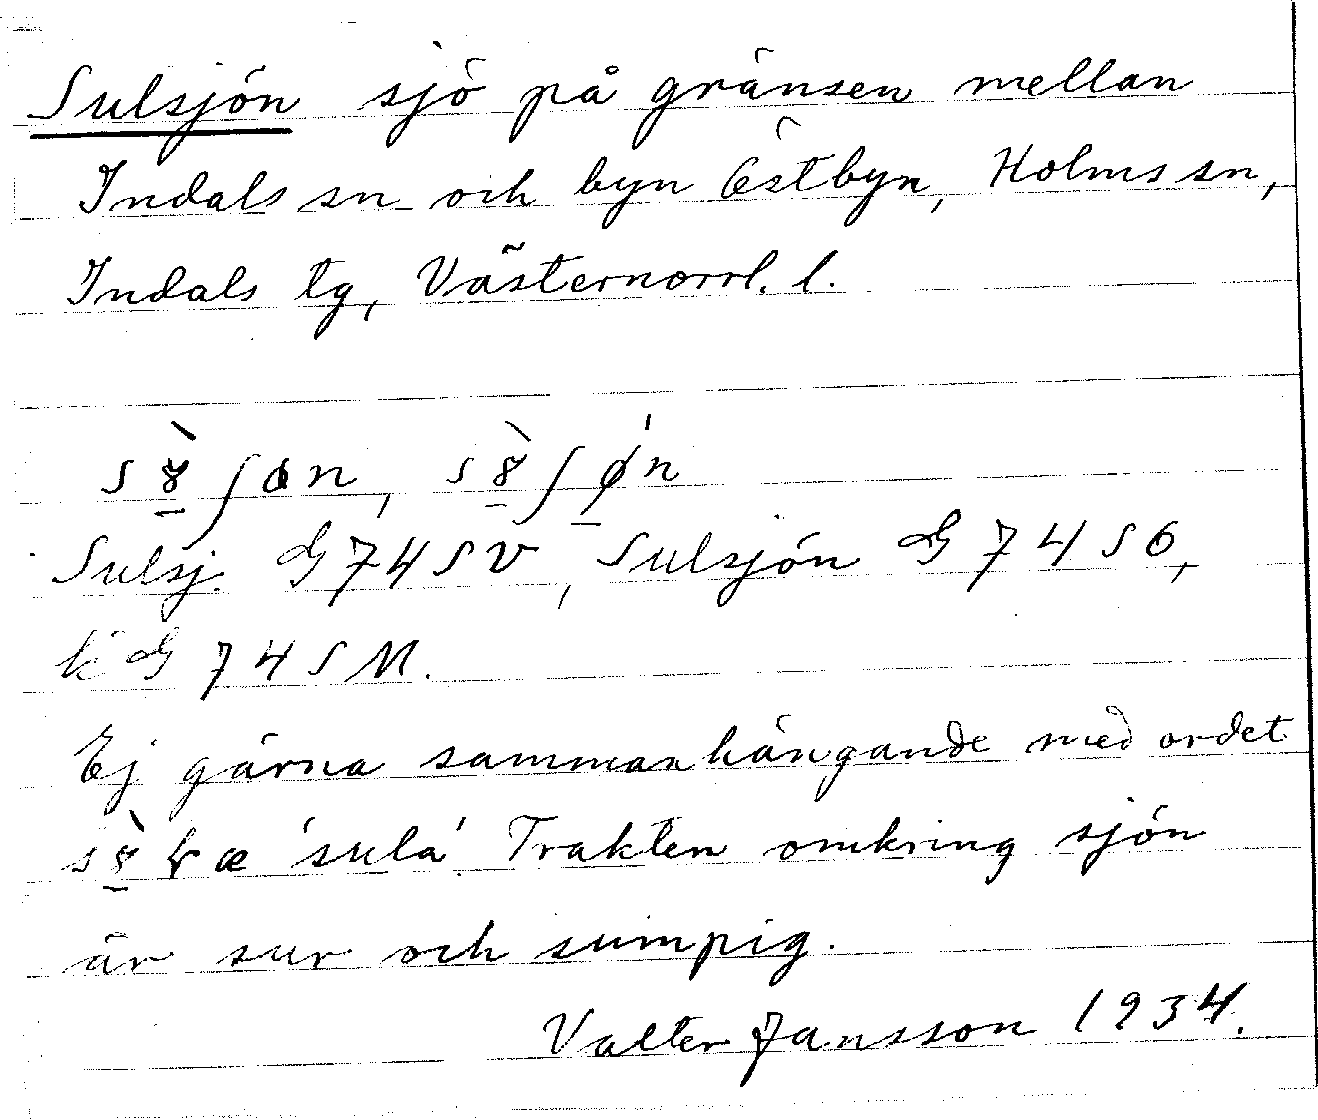 Sulsjön sjö på gränsen mellan
Indals sn och byn Östbyn, Holms sn,
Indals tg, Västernorrl. l.
Sulsj. G74SV, Sulsjön G74SÖ,
k G74SM.
Ej gärna sammanhängande med ordet
'sula' Trakten omkring sjön
är sur och sumpig.
Valter Jansson 1934.